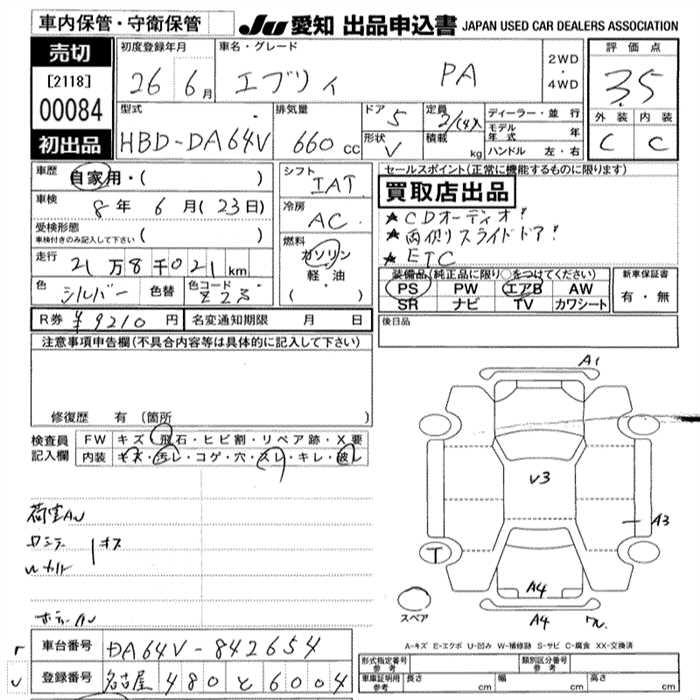 車内保管・守衛保管
JU 愛知 出品申込書 JAPAN USED CAR DEALERS ASSOCIATION
売切
[2118]
00084
初出品
初度登録年月 26 6月
車名・グレード エブリィ PA
2WD・4WD
評価点 3.5
外装 C 内装 C
型式 HBD-DA64V
排気量 660 cc
ドア 5
形状 V
定員
積載 kg
ディーラー・並行
モデル年式 年
ハンドル 左・右
車歴 自家用・( )
車検 8年 6月(23日)
受検形態 ( )
車検付きのみ記入して下さい
走行 21万8千021km
色 シルバー 色替 色コード Z2S
R券 ¥9210円 名変通知期限 月 日
シフト IAT
冷房 AC
燃料 ガソリン・軽油
( ・ )
セールスポイント(正常に機能するものに限ります)
買取店出品
★CDオーディオ!
★両側スライドドア!
★ETC
装備品(純正品に限り○をつけてください)
PS PW エアB AW
SR ナビ TV カワシート
新車保証書
有・無
後日品
注意事項申告欄(不具合内容等は具体的に記入して下さい)
修復歴 有 (箇所
検査員記入欄
FW キズ・飛石・ヒビ割・リペア跡・X要
内装 キズ・汚レ・コゲ・穴・スレ・キレ・破レ
キズ
A1
V3
A3
T
A4
A4
スペア
A-キズ E-エクボ U-凹み W-補修跡 S-サビ C-腐食 XX-交換済
車台番号 DA64V-842654
登録番号 名古屋 480 と 6004
形式指定番号 参考
類別区分番号 参考
車庫証明用 参考 長さ cm 幅 cm 高さ cm